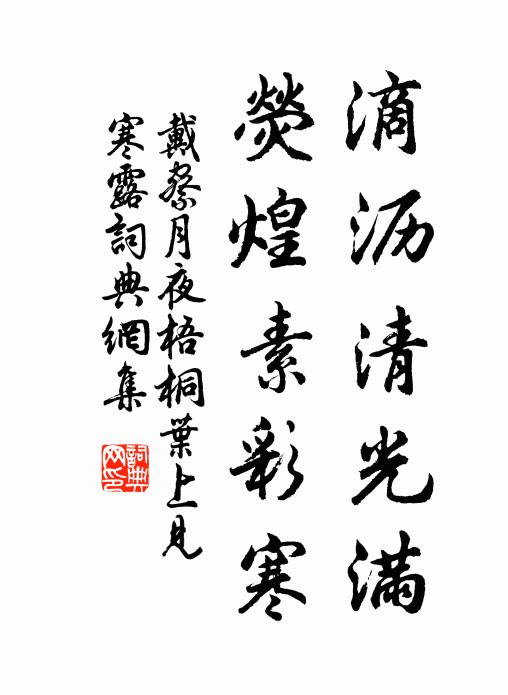 滴沥清光满
熒煌素彩寒
戴察月夜梧桐葉上見
寒露詞典網集
詞典
网印